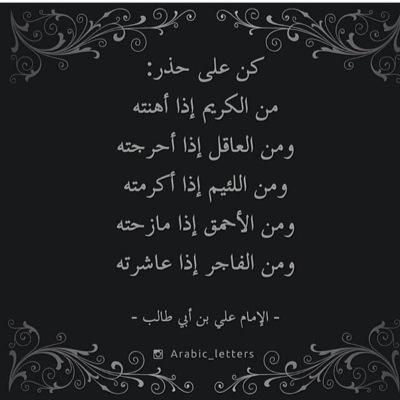 كن على حذر:
من الكريم إذا أهنته
ومن العاقل إذا أحرجته
ومن اللئيم إذا أكرمته
ومن الأحمق إذا مازحته
ومن الفاجر إذا عاشرته
- الإمام علي بن أبي طالب -
Arabic_letters